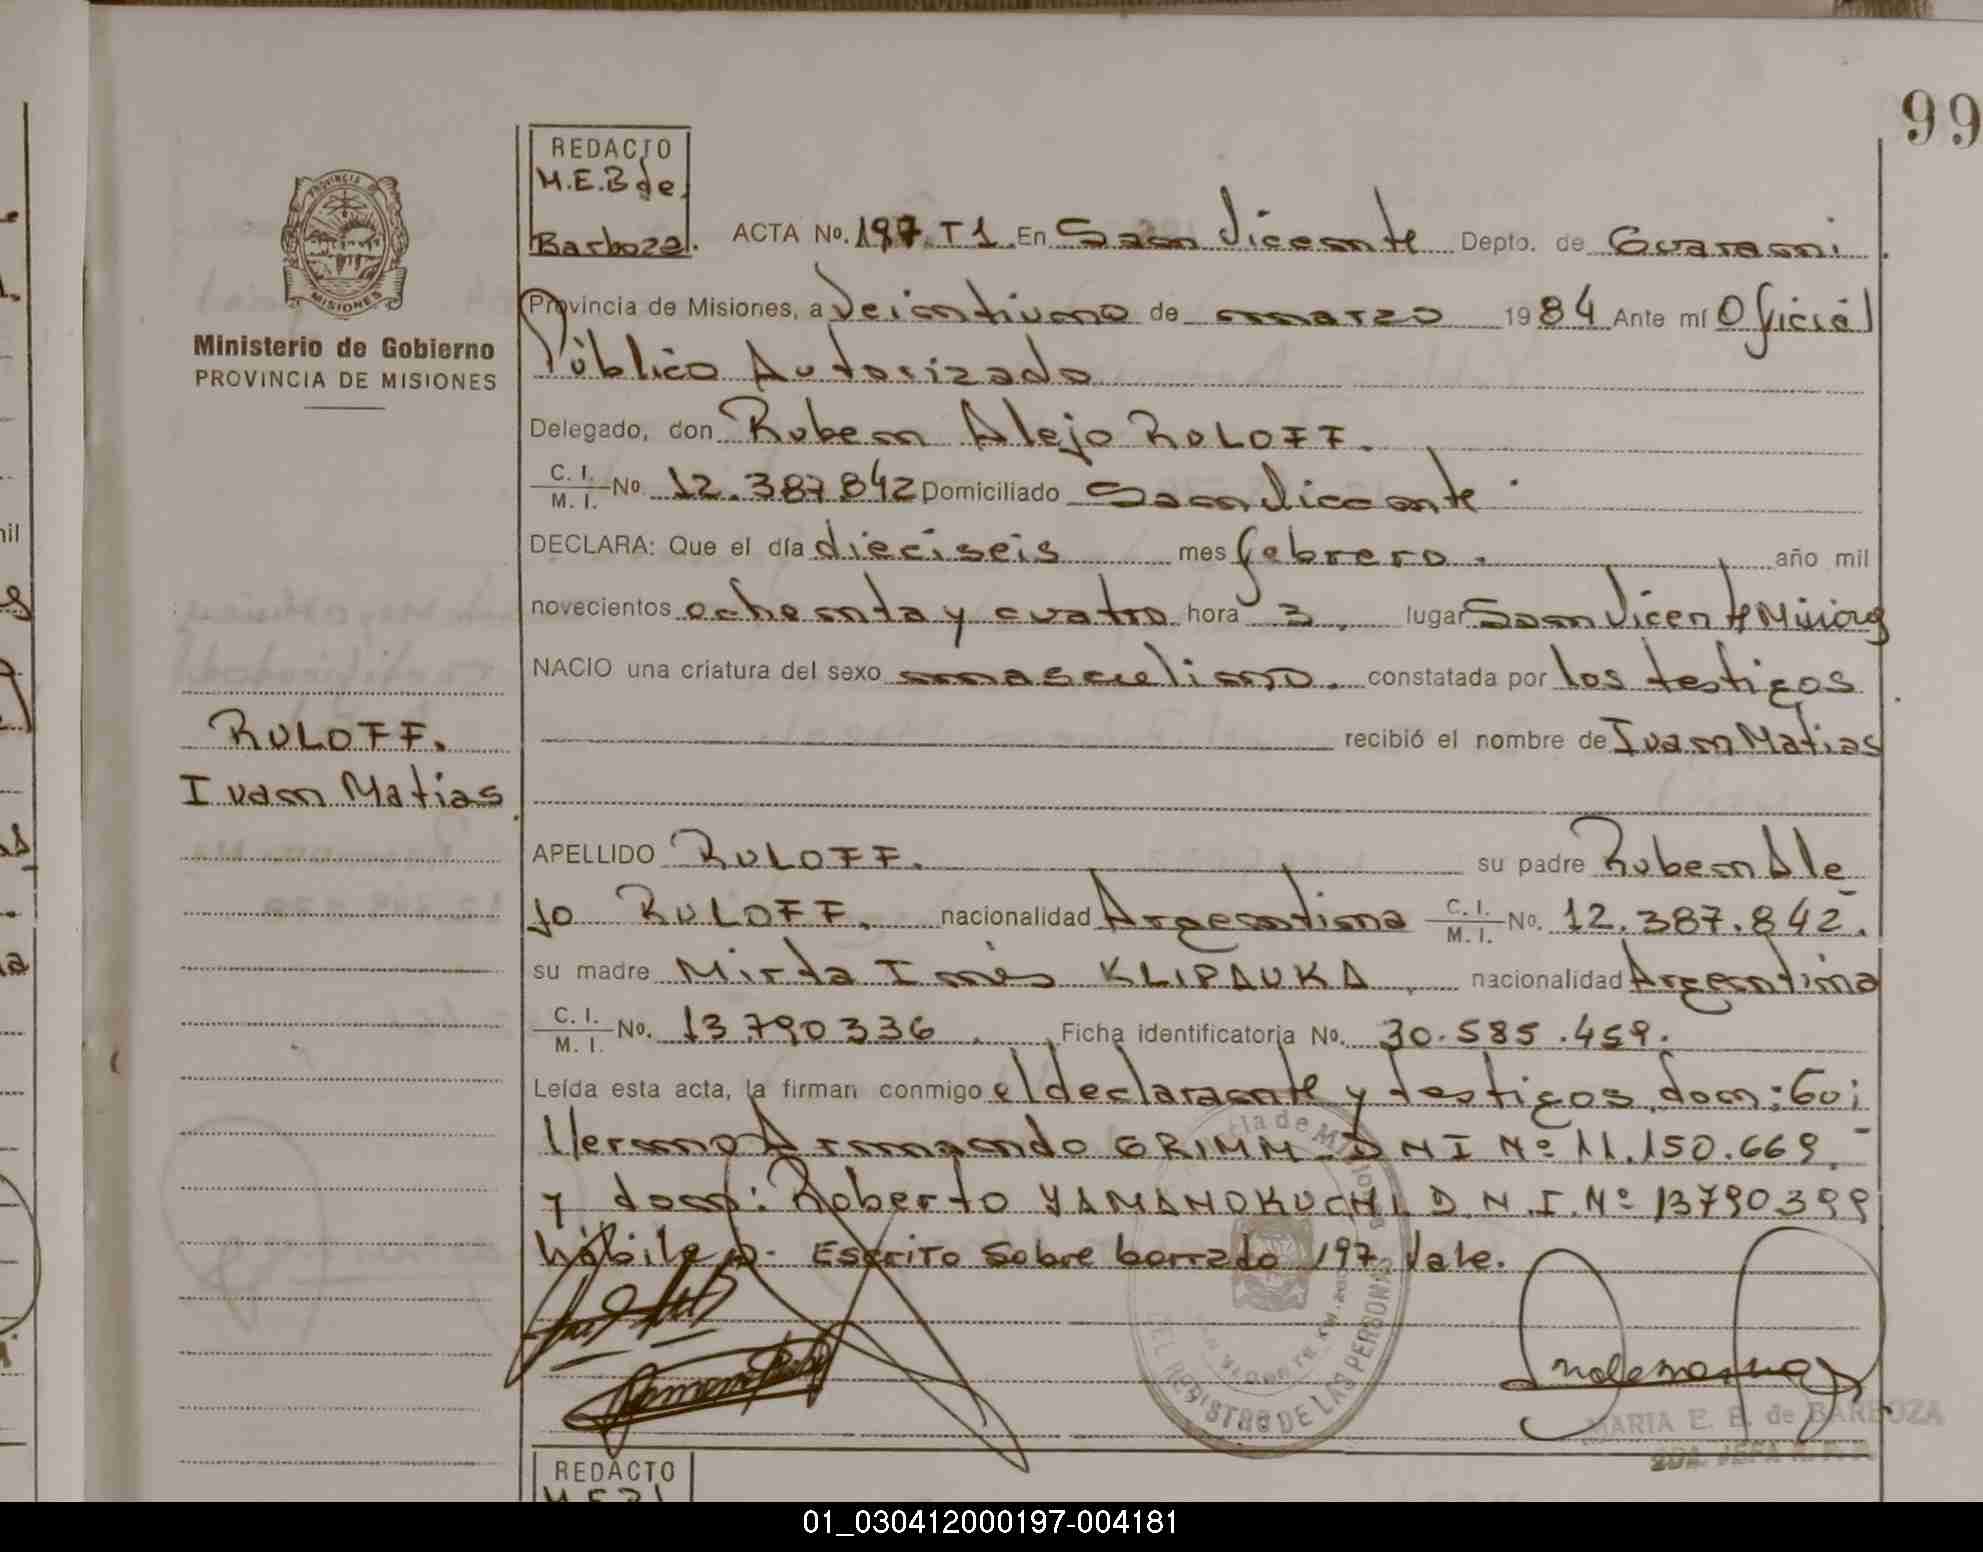 99
REDACTO
M.E.B de
Barboza.
ACTA No. 197 T1 En San Vicente Depto. de Guarani
Provincia de Misiones, a Veintiuno de marzo 1984 Ante mí Oficial
Público Autorizado
Delegado, don Ruben Alejo RULOFF.
C. I. / M. I. No 12.387.842 Domiciliado San Vicente
DECLARA: Que el día dieciseis mes febrero. año mil
novecientos ochenta y cuatro hora 3. lugar San Vicente
NACIO una criatura del sexo masculino. constatada por los testigos
recibió el nombre de Ivan Matias
APELLIDO RULOFF. su padre Ruben Ale
jo RULOFF. nacionalidad Argentina C. I. / M. I. No. 12.387.842.
su madre Mirta Inés KLIPAUKA, nacionalidad Argentina
C. I. / M. I. No. 13.790336. Ficha identificatoria No. 30.585.459.
Leída esta acta, la firman conmigo el declarante y testigos don: Gui
llermo Armando GRIMM. DNI Nº 11.150.669.
y don: Roberto YAMANOKUCHI. D.N.I. Nº 13790399
hábiles. Escrito sobre borrado 197 Vale.
Ministerio de Gobierno
PROVINCIA DE MISIONES
RULOFF.
Ivan Matias
MARIA E. B. de BARBOZA
REDACTO
01_030412000197-004181